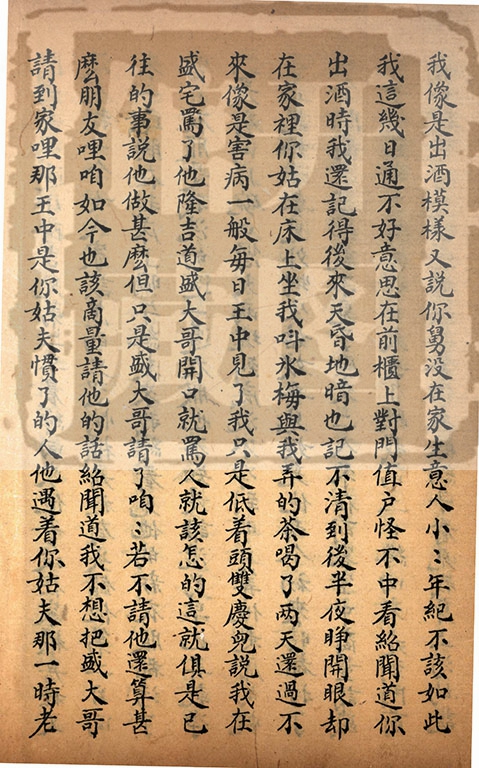 我像是出酒模樣又説你舅没在家生意人小〻年紀不該如此
我這幾日通不好意思在前櫃上對門值户怪不中看紹聞道你
出酒時我還記得後來天昏地暗也記不清到後半夜睁開眼却
在家裡你姑在床上坐我呌氷梅與我弄的茶喝了两天還過不
來像是害病一般每日王中見了我只是低着頭雙慶兒説我在
盛宅罵了他隆吉道盛大哥開口就罵人就該怎的這就俱是已
往的事説他做甚麽但只是盛大哥請了咱〻若不請他還算甚
麽朋友哩咱如今也該商量請他的話紹聞道我不想把盛大哥
請到家哩那王中是你姑夫慣了的人他遇着你姑夫那一時老